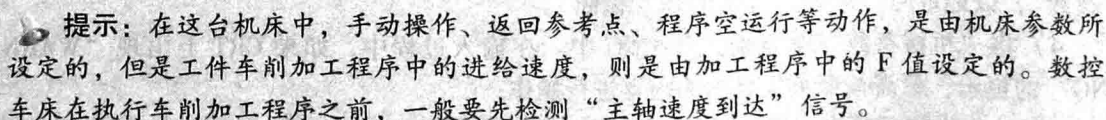 提示：在这台机床中，手动操作、返回参考点、程序空运行等动作，是由机床参数所
设定的，但是工件车削加工程序中的进给速度，则是由加工程序中的 F 值设定的。数控
车床在执行车削加工程序之前，一般要先检测“主轴速度到达”信号。